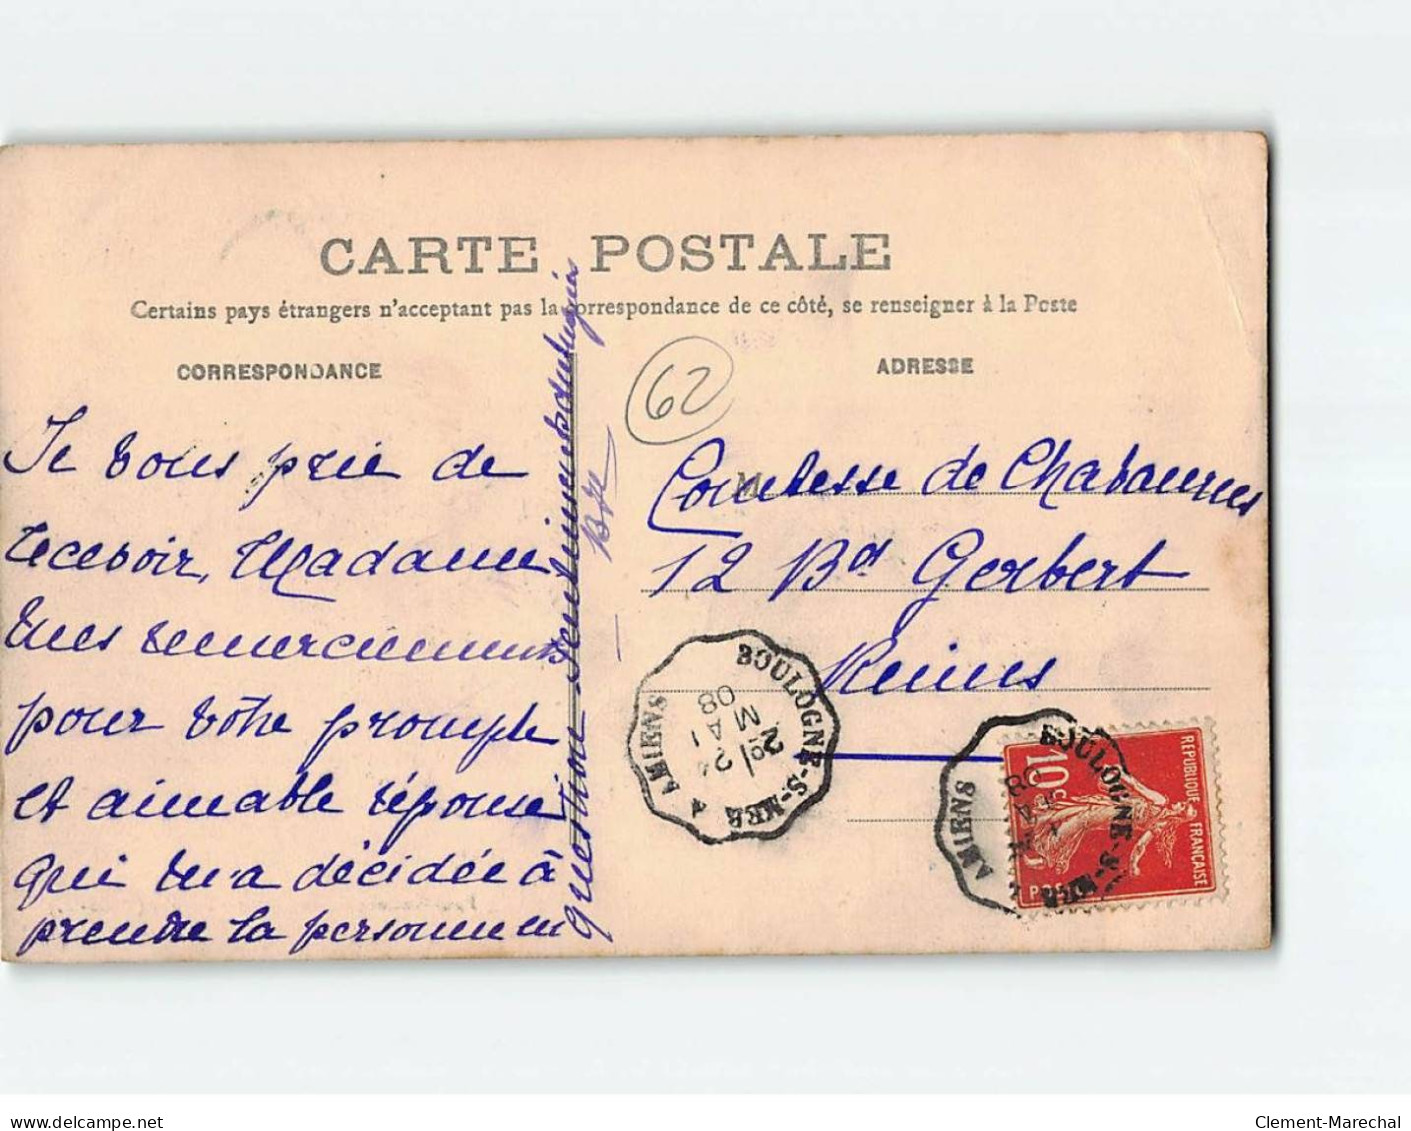 CARTE POSTALE
Certains pays étrangers n'acceptant pas la correspondance de ce côté, se renseigner à la Poste
CORRESPONDANCE
ADRESSE
62
Je vous prie de
recevoir, Madame
mes remerciements
pour votre prompte
et aimable réponse
qui m'a décidée à
prendre la personne en
question. Sentiments distingués
M
Comtesse de Chabannes
12 Bd Gerbert
Reims
BOULOGNE-S-MER
AMIENS
2°
24
MAI
08
BOULOGNE-S-MER
AMIENS
REPUBLIQUE FRANCAISE
10c
POSTES
www.delcampe.net
Clement-Marechal